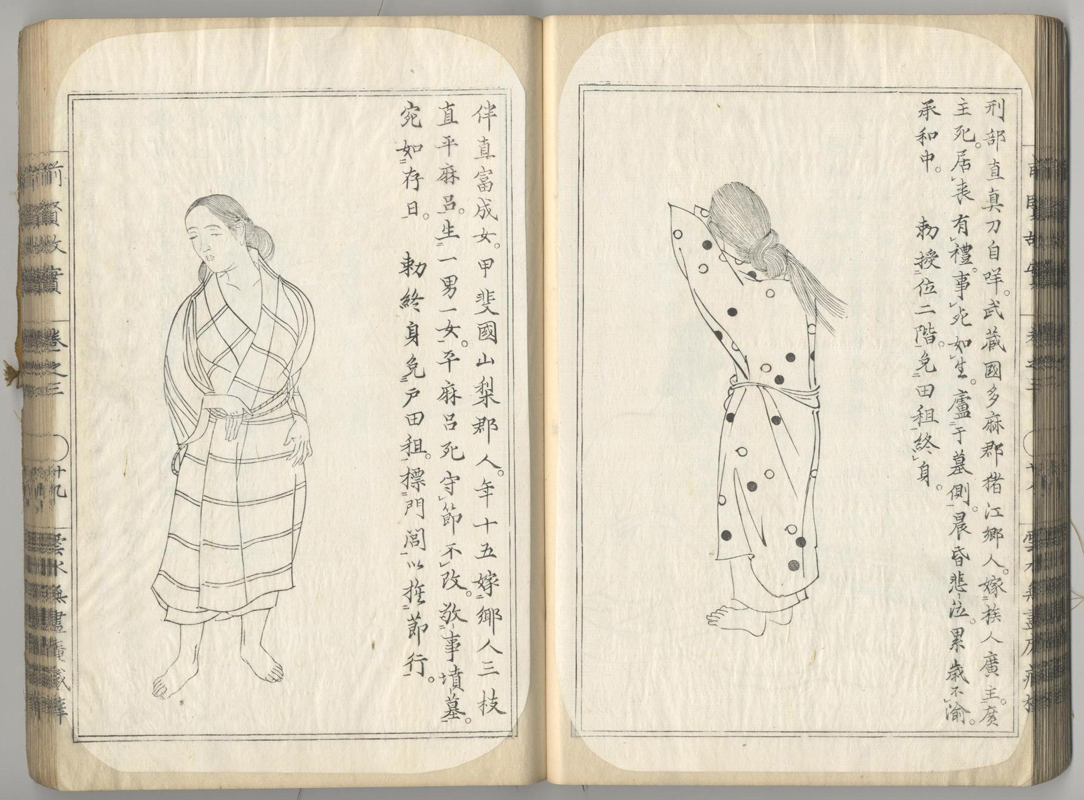 刑部直真刀自咩。武蔵國多麻郡猪江郷人。嫁族人廣主。廣
主死。居喪有禮。事死如生。廬于墓側。晨昏悲泣。累歳不渝。
承和中。　勅授位二階。免田租終身。
伴直富成女。甲斐國山梨郡人。年十五嫁郷人三枝
直平麻呂。生一男一女。平麻呂死守節不改。敬事墳墓。
宛如存日。　勅終身免戸田租。標門閭以旌節行。
前賢故實
卷之三
廿九
雲水無盡庵藏